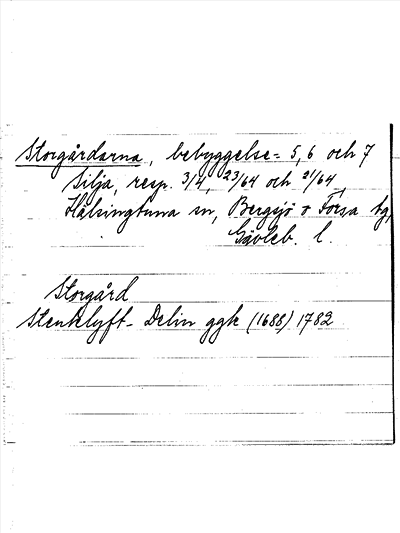 Storgårdarna, bebyggelse = 5, 6 och 7
Silja, resp. 3/4, 23/64 och 21/64,
Hälsingtuna sn, Bergsjö o Forsa tg,
Gävleb. l.
Storgård
Stenklyft - Delin ggk (1688) 1782